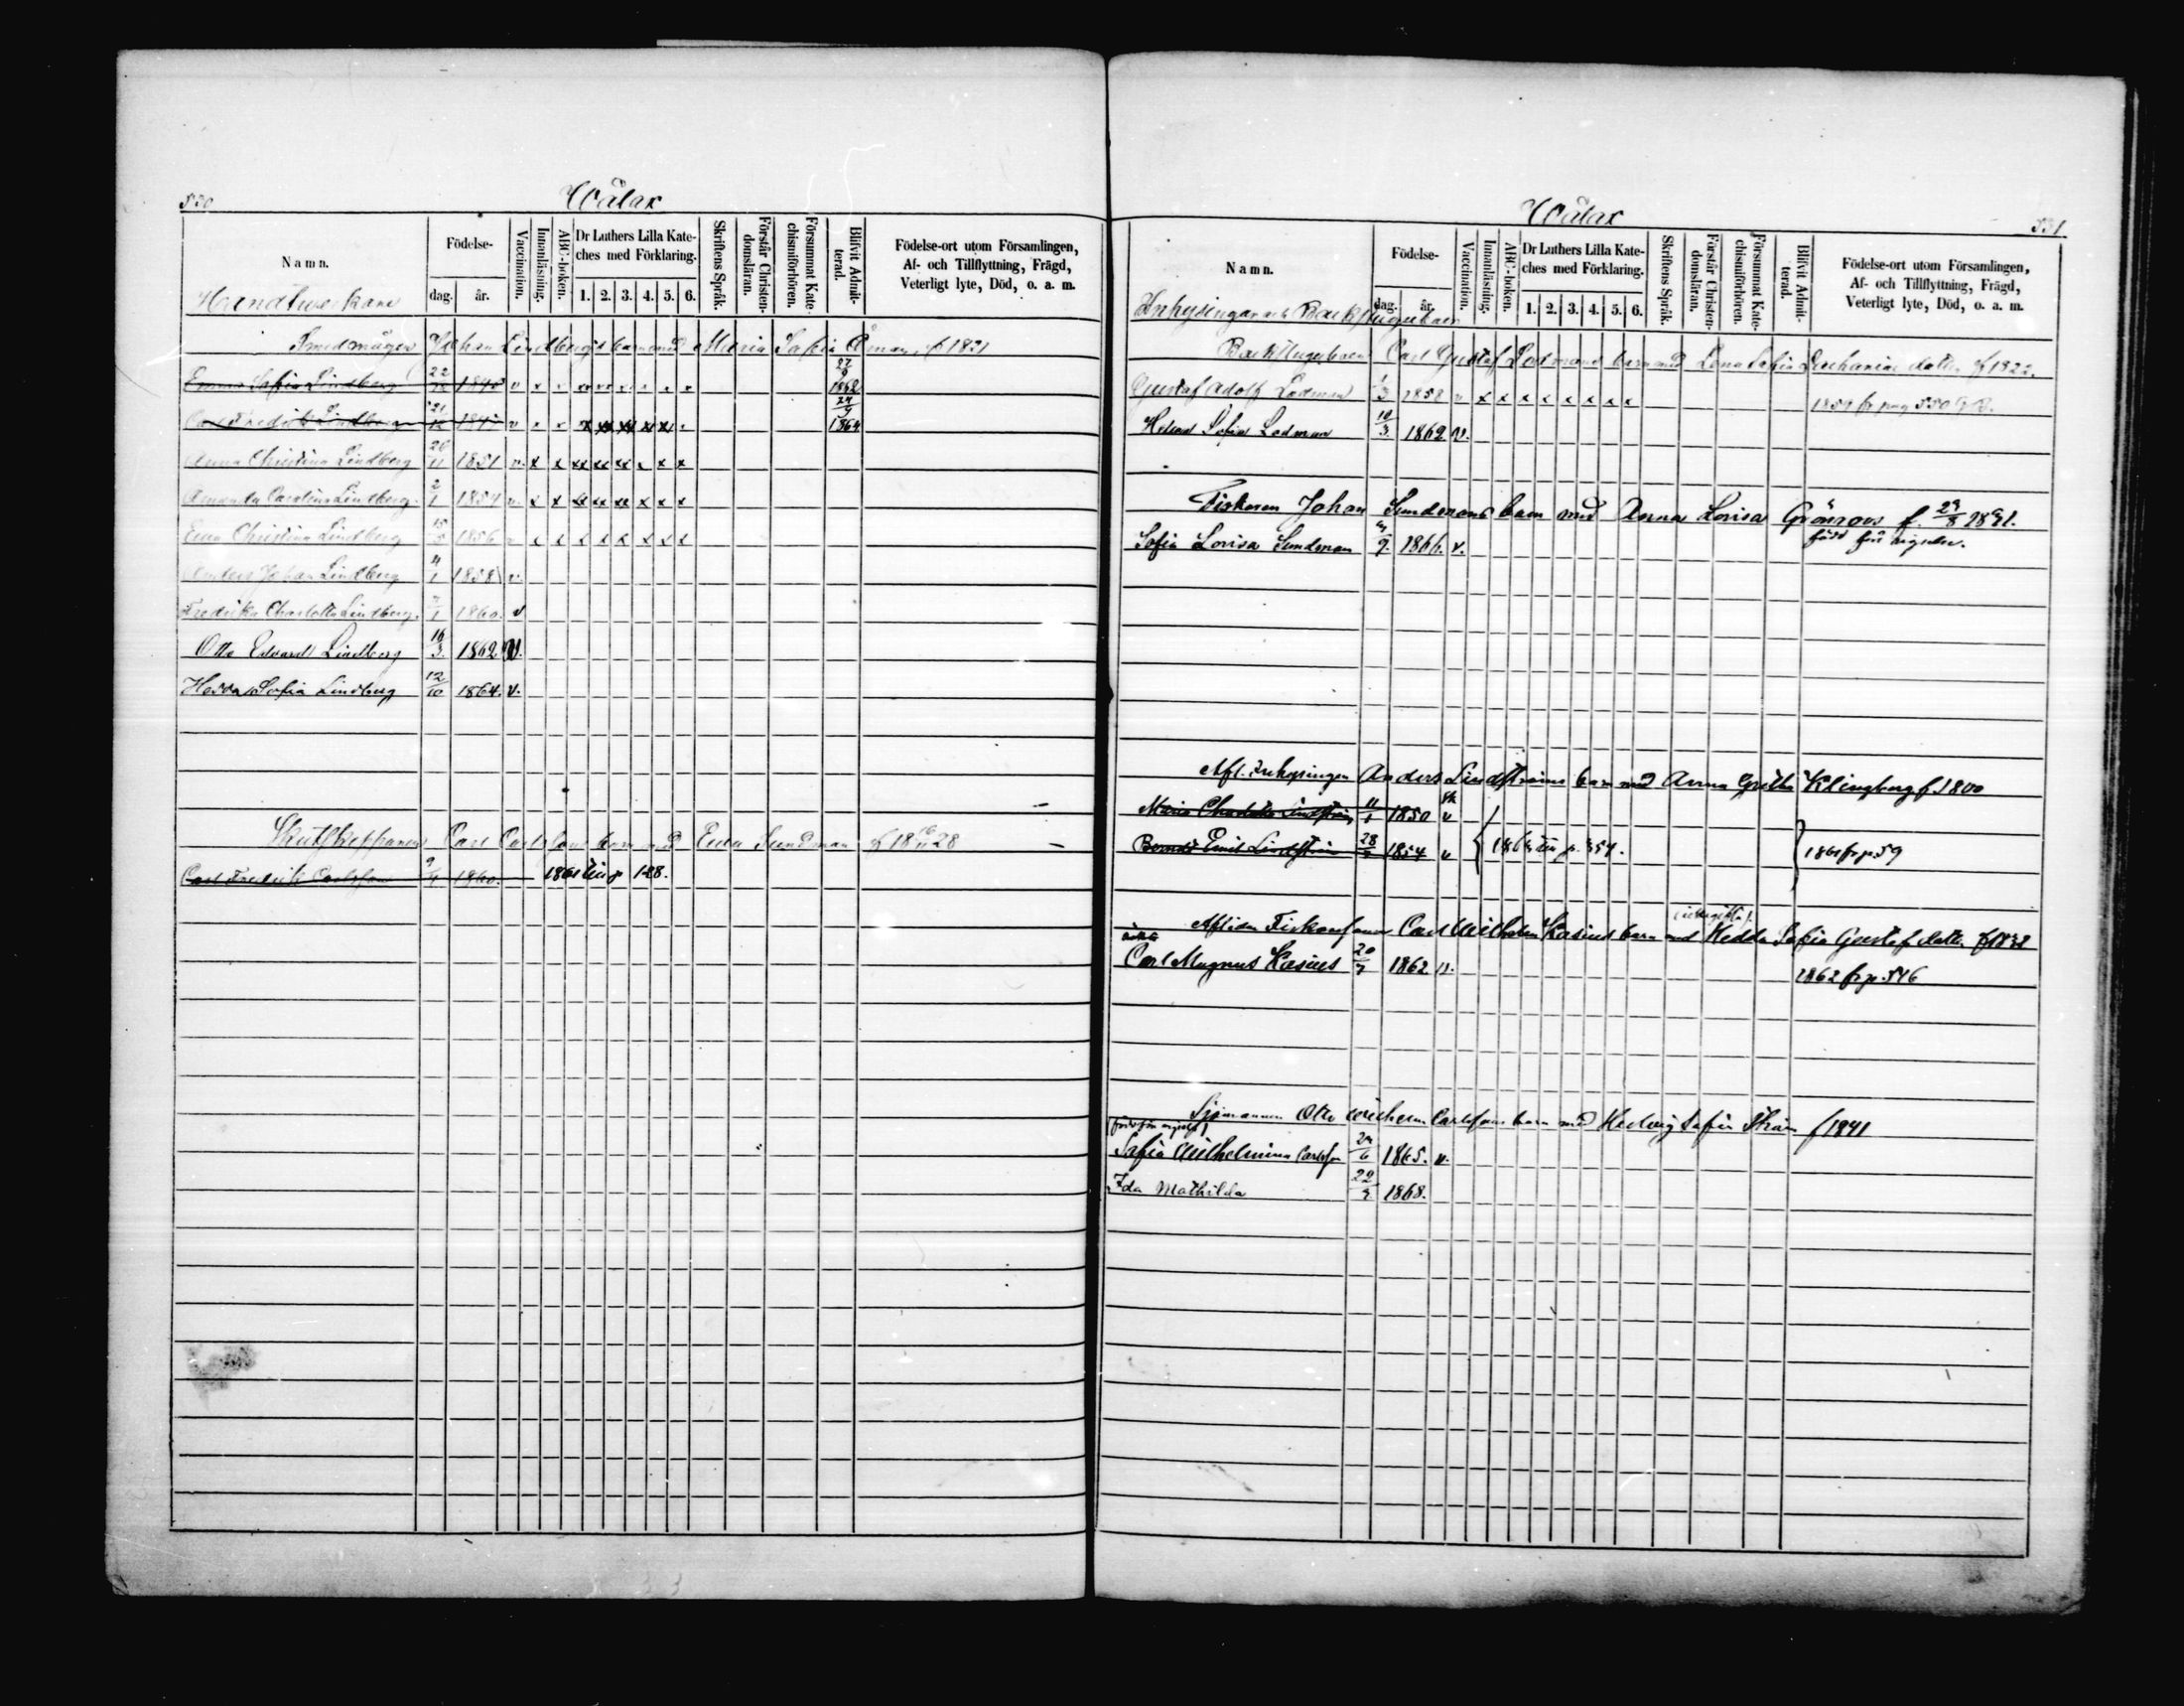 530
Wålax
Namn.
Födelse-
dag.
år.
Vaccination.
Innanläsning.
ABC-boken.
Dr Luthers Lilla Kate-
ches med Förklaring.
1. 2. 3. 4. 5. 6.
Skriftens Språk.
Förstår Christen-
domsläran.
Försummat Kate-
chismiförhören.
Blifvit Admit-
terad.
Födelse-ort utom Församlingen,
Af- och Tillflyttning, Frägd,
Veterligt lyte, Död, o. a. m.
Handtwerkare
Johan Lindbergs barn med Maria Sofia Åman f 1821
Emma Sofia Lindberg 22 v x 27/9 1862
Carl Fredrik Lindberg 21 v x x 24/9 1864
Anna Christina Lindberg 26/11 1851 v. x x xx xx xx x x x
Amanda Carolina Lindberg. 2/1 1854 v. x x xx xx xx x x x
Eva Christina Lindberg 15/5 1856 x x x x x x x x
Anders Johan Lindberg 4/1 1858 v.
Fredrika Charlotta Lindberg. 1860. v
Otto Edvard Lindberg 16/3. 1862 v.
Hedda Sofia Lindberg 12/10 1864. v.
Carl Carlssons barn med Eva Sundman f 18 16/11 28
Carl Fredrik Carlsson 9/4 1860. 1861 till p 188.
Wålax
531
Namn.
Födelse-
dag.
år.
Vaccination.
Innanläsning.
ABC-boken.
Dr Luthers Lilla Kate-
ches med Förklaring.
1. 2. 3. 4. 5. 6.
Skriftens Språk.
Förstår Christen-
domsläran.
Försummat Kate-
chismiförhören.
Blifvit Admit-
terad.
Födelse-ort utom Församlingen,
Af- och Tillflyttning, Frägd,
Veterligt lyte, Död, o. a. m.
Inhysingar och Backstugubarn
Carl Gustaf Lodmans barn med Lena Sofia Zachariæ dotter f 1822.
Gustaf Adolf Lodman 1/3 1858 v x x x x x x x x 1859 fr pag 550
Sofia Lodman 10/3 1862 v.
Fiskaren Johan Sundmans barn med Anna Lovisa Grönroos f. 29/8
Sofia Lovisa Sundman 9. 1866. v. född för vigseln.
Afl. Inhysingen Anders Lindströms barn med Anna Greta Klingberg f. 1800
Maria Charlotta Lindström 11 1850 v
Emil Lindström 28 1854 v 1861 fr p. 59
Aflidne Carl Wilhelm Kasius barn med Hedda Sofia Gustafsdotter
Carl Magnus Kasius 20 1862 v. 1862 fr p. 546
Sjömannen Otto Wilhelm Carlssons barn med Hedvig Sofia Ström f 1841
Sofia Wilhelmina Carlsson 24/6 1865. v.
Ida Mathilda 22 1868.